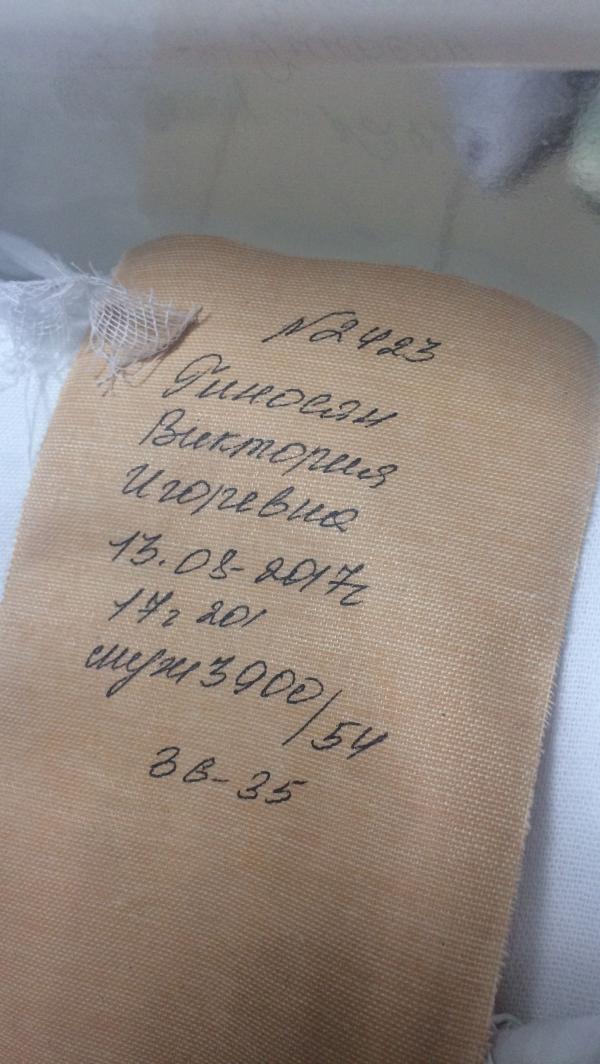 №2423
Гиносян
Виктория
Игоревна
13.03-2017г
17г 20'
муж 3900/54
3в-35